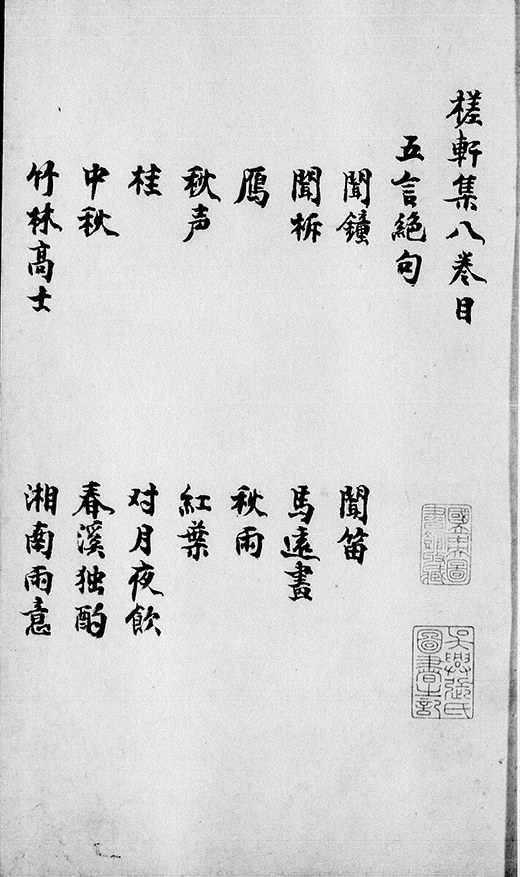 槎軒集八卷目
五言絕句
聞鐘
聞笛
聞柝
馬遠畫
鴈
秋雨
秋声
紅葉
桂
对月夜飲
中秋
春溪独酌
竹林高士
湘南雨意
國立北平圖書館收藏
吳興張氏圖書之記